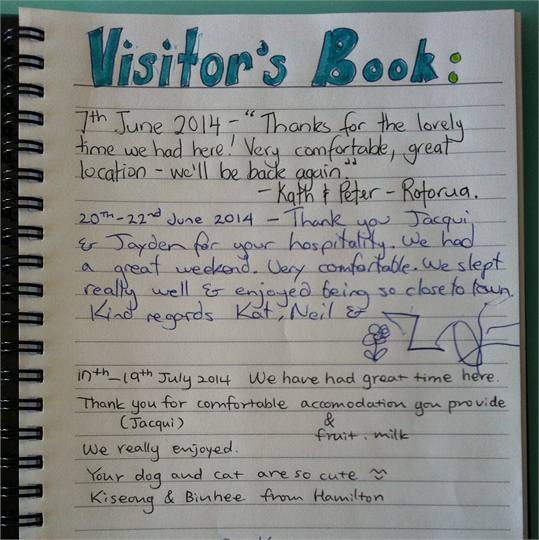 Visitor's Book:
7th June 2014 - "Thanks for the lovely
time we had here! Very comfortable, great
location - we'll be back again."
- Kath & Peter - Rotorua.
20th-22nd June 2014 - Thank you Jacqui
& Jayden for your hospitality. We had
a great weekend. Very comfortable. We slept
really well & enjoyed being so close to town.
Kind regards Kat, Neil &
17th-19th July 2014 We have had great time here.
Thank you for comfortable accomodation you provide
(Jacqui) &
fruit. milk
We really enjoyed.
Your dog and cat are so cute
Kiseong & Binhee from Hamilton